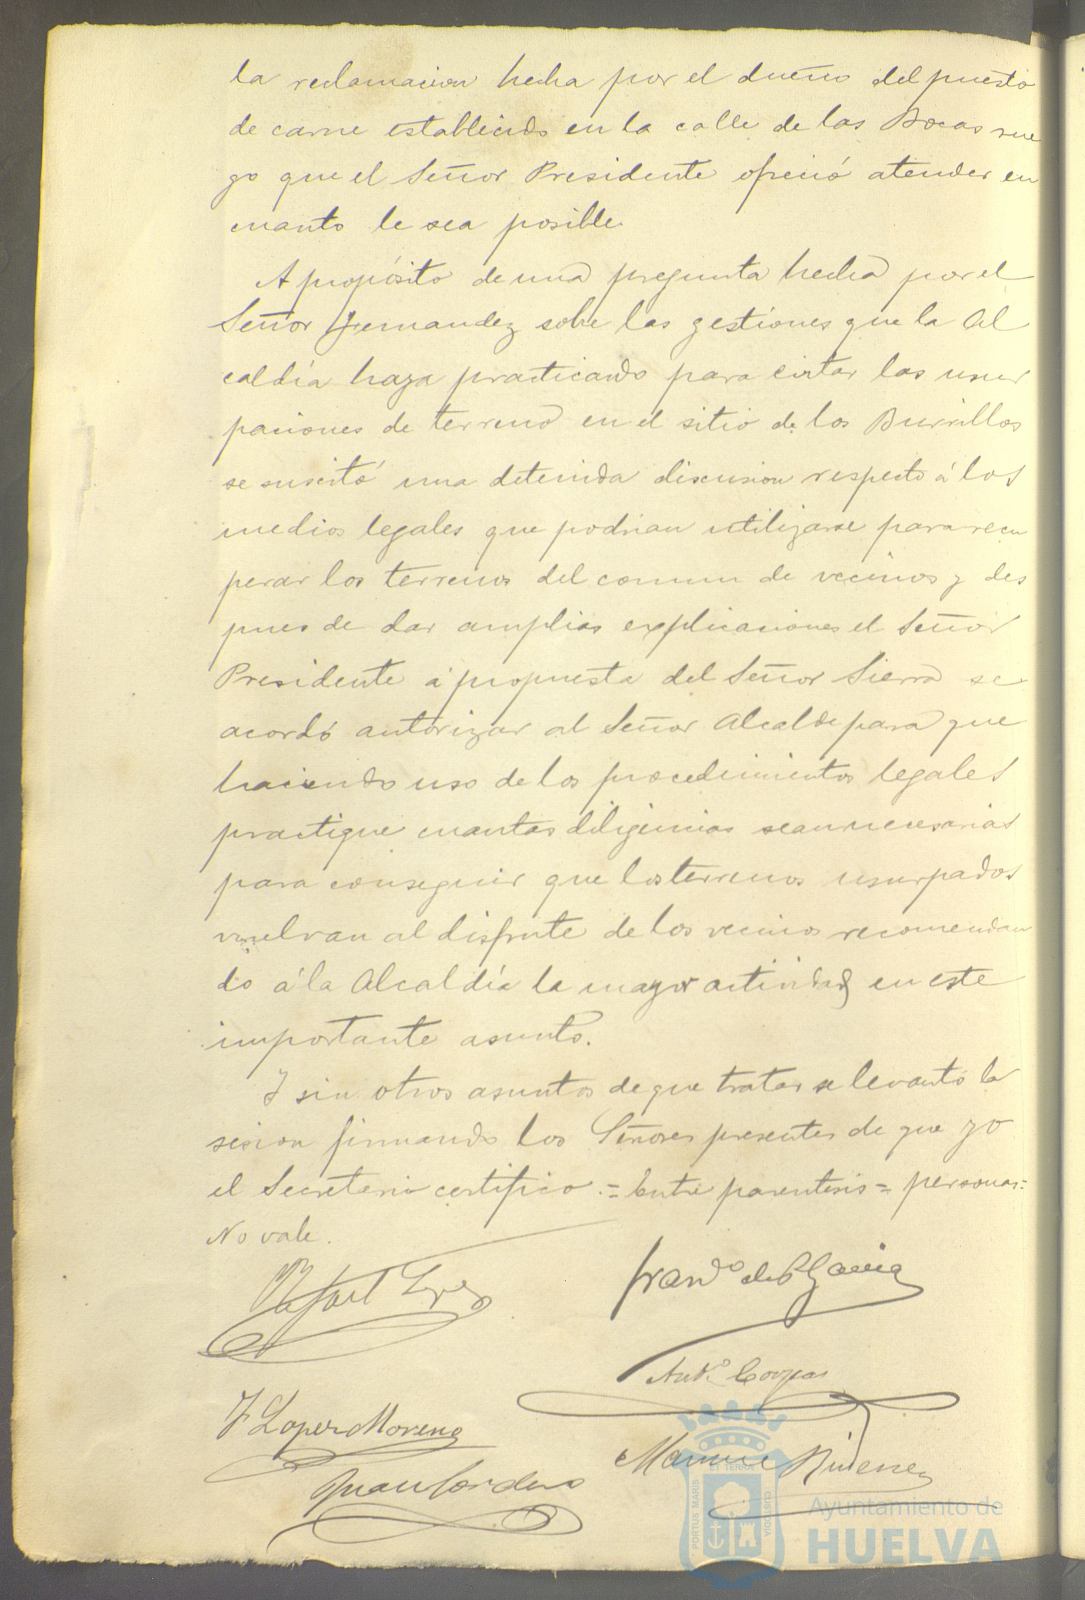 la reclamacion hecha por el dueño del puesto
de carne establecido en la calle de las Bocas rue
go que el Señor Presidente ofreció atender en
cuanto le sea posible.
A propósito de una pregunta hecha por el
Señor Fernandez sobre las gestiones que la Al
caldía haya practicando para evitar las usur
paciones de terreno en el sitio de los Burrillos
se suscitó una detenida discusion respecto á los
medios legales que podrian utilizarse para recu
perar los terrenos del comun de vecinos y des
pues de dar amplias explicaciones el Señor
Presidente á propuesta del Señor Sierra se
acordó autorizar al Señor Alcalde para que
haciendo uso de los procedimientos legales
practique cuantas diligencias sean necesarias
para conseguir que los terrenos usurpados
vuelvan al disfrute de los vecinos recomendan
do á la Alcaldía la mayor actividad en este
importante asunto.
Y sin otros asuntos de que tratar se levantó la
sesion firmando los Señores presentes de que yo
el Secretario certifico.=Entre parentesis=personas=
No vale.
Rafael
Fran.do de P. Garcia
Ant.o
F Lopez Moreno
Manuel Jimenez
Juan Cordero
PORTUS MARIS ET TERRE CUSTODIA
Ayuntamiento de
HUELVA